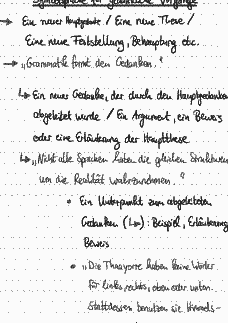 Symbolsprache für gedankliche Vorgänge
→ Ein neuer Hauptgedanke / Eine neue These /
Eine neue Feststellung, Behauptung etc.
→ „Grammatik formt den Gedanken."
↳ Ein neuer Gedanke, der durch den Hauptgedanken
abgeleitet wurde / Ein Argument, ein Beweis
oder eine Erläuterung der Hauptthese
↳ „Nicht alle Sprachen haben die gleichen Strukturen
um die Realität wahrzunehmen."
• Ein Unterpunkt zum abgeleiteten
Gedanken (↳): Beispiel, Erläuterung,
Beweis
• „Die Thaayorre haben keine Wörter
für links, rechts, oben oder unten.
Stattdessen benutzen sie Himmels-